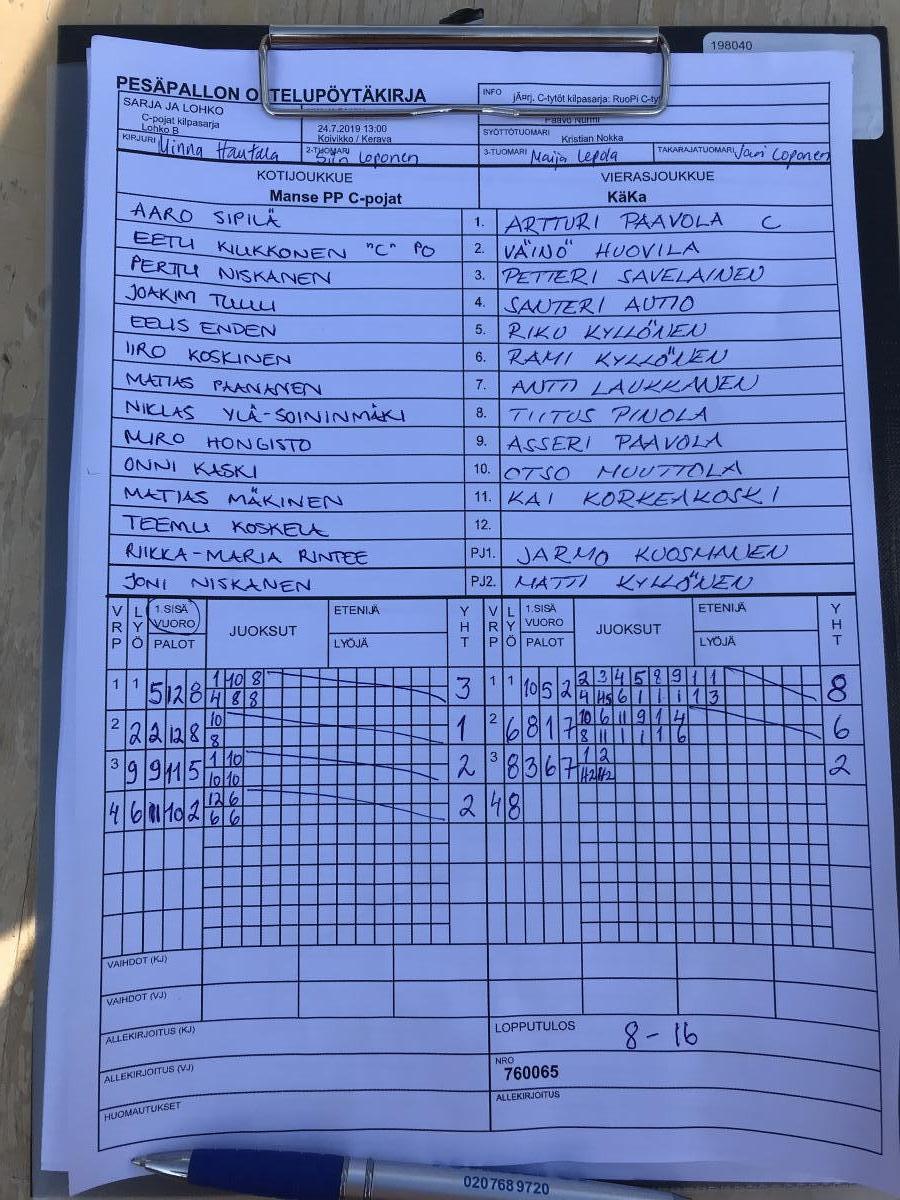 198040
PESÄPALLON O TELUPÖYTÄKIRJA
INFO jÄ¤rj. C-tytöt kilpasarja: RuoPi C-ty
SARJA JA LOHKO
C-pojat kilpasarja
Lohko B
24.7.2019 13:00
Koivikko / Kerava
Paavo Nurmi
SYÖTTÖTUOMARI
Kristian Nokka
KIRJURI Minna Hautala 2-TUOMARI Siiri Loponen 3-TUOMARI Maija Lepola TAKARAJATUOMARI Joni Loponen
KOTIJOUKKUE VIERASJOUKKUE
Manse PP C-pojat KäKa
AARO SIPILÄ 1. ARTTURI PAAVOLA C
EETU KIUKKONEN "C" PO 2. VÄINÖ HUOVILA
PERTTU NISKANEN 3. PETTERI SAVELAINEN
JOAKIM TUULI 4. SANTERI AUTIO
EELIS ENDEN 5. RIKU KYLLÖNEN
IIRO KOSKINEN 6. RAMI KYLLÖNEN
MATIAS PAANANEN 7. ANTTI LAUKKANEN
NIKLAS YLÄ-SOININMÄKI 8. TIITUS PINOLA
MIRO HONGISTO 9. ASSERI PAAVOLA
ONNI KASKI 10. OTSO MUUTTOLA
MATIAS MÄKINEN 11. KAI KORKEAKOSKI
TEEMU KOSKELA 12.
RIIKKA-MARIA RINTEE PJ1. JARMO KUOSMANEN
JONI NISKANEN PJ2. MATTI KYLLÖNEN
VRP LYÖ 1.SISÄ VUORO PALOT JUOKSUT ETENIJÄ LYÖJÄ YHT VRP LYÖ 1.SISÄ VUORO PALOT JUOKSUT ETENIJÄ LYÖJÄ YHT
1 1 5 12 8 1 10 8 3 1 1 10 5 2 2 3 4 5 8 9 1 1 8
4 8 8 4 H5 6 1 1 1 1 3
2 2 2 12 8 10 1 2 6 8 1 7 10 6 11 9 1 4 6
8 8 11 1 1 1 6
3 9 9 11 5 1 10 2 3 8 3 6 7 1 2 2
10 10 H2 H2
4 6 11 10 2 12 6 2 4 8
6 6
VAIHDOT (KJ)
VAIHDOT (VJ)
ALLEKIRJOITUS (KJ) LOPPUTULOS 8-16
ALLEKIRJOITUS (VJ) NRO 760065
HUOMAUTUKSET ALLEKIRJOITUS
020 768 9720